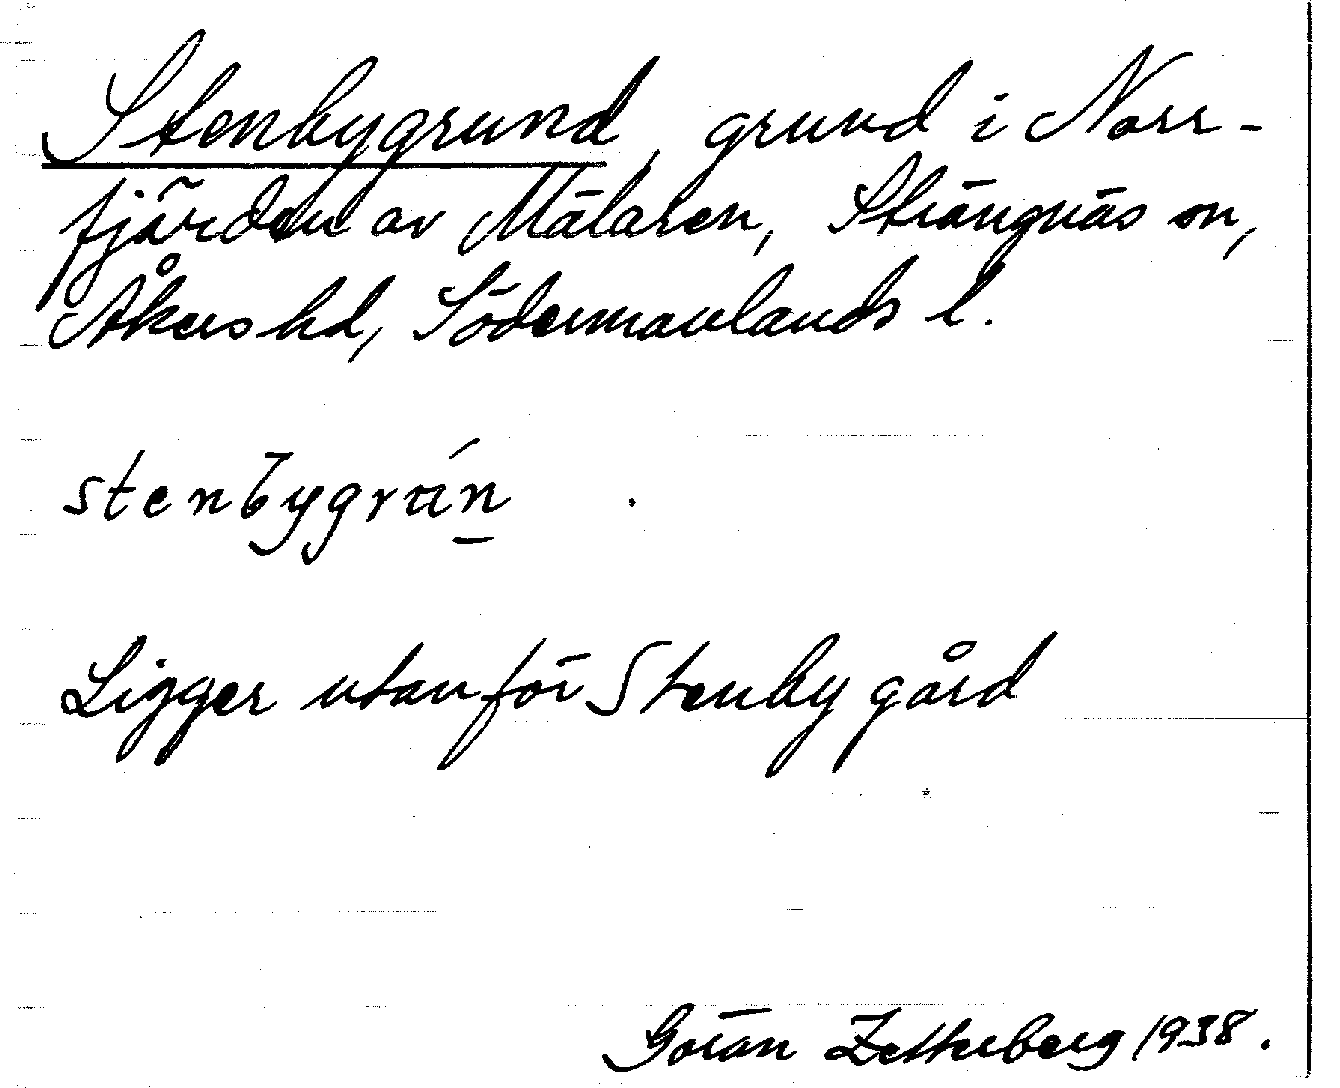 Stenbygrund, grund i Norr-
fjärden av Mälaren, Strängnäs sn,
Åkers hd, Södermanlands l.
stenbygrún̲
Ligger utanför Stenby gård
Göran Zetterberg 1938.